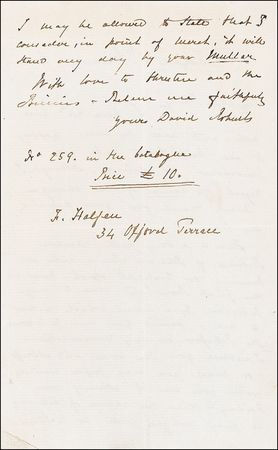 I may be allowed to state that I
consider, in point of merit, it will
stand very day by your Mullar
With love to Christen and the
& Believe me faithfully
yours David Roberts
No 259. in the Catalogue
Price £ 10.
F. Halpen
34 Offord Terrace